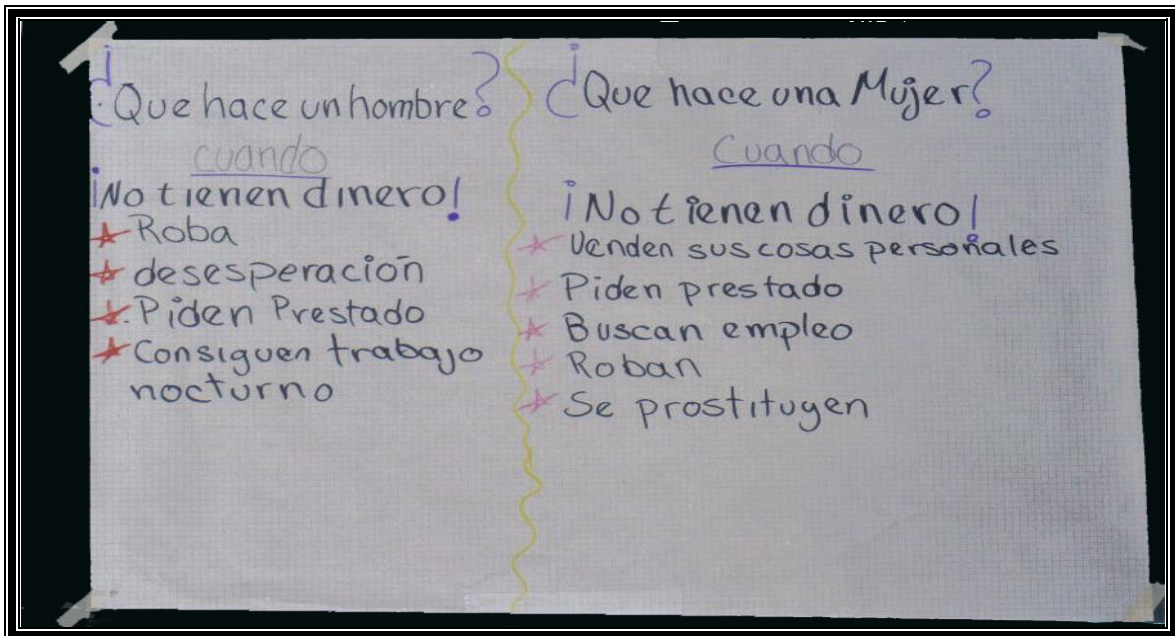 ¿Que hace un hombre?
cuando
¡No tienen dinero!
Roba
desesperación
Piden Prestado
Consiguen trabajo
nocturno
¿Que hace una Mujer?
Cuando
¡No tienen dinero!
Venden sus cosas personales
Piden prestado
Buscan empleo
Roban
Se prostituyen